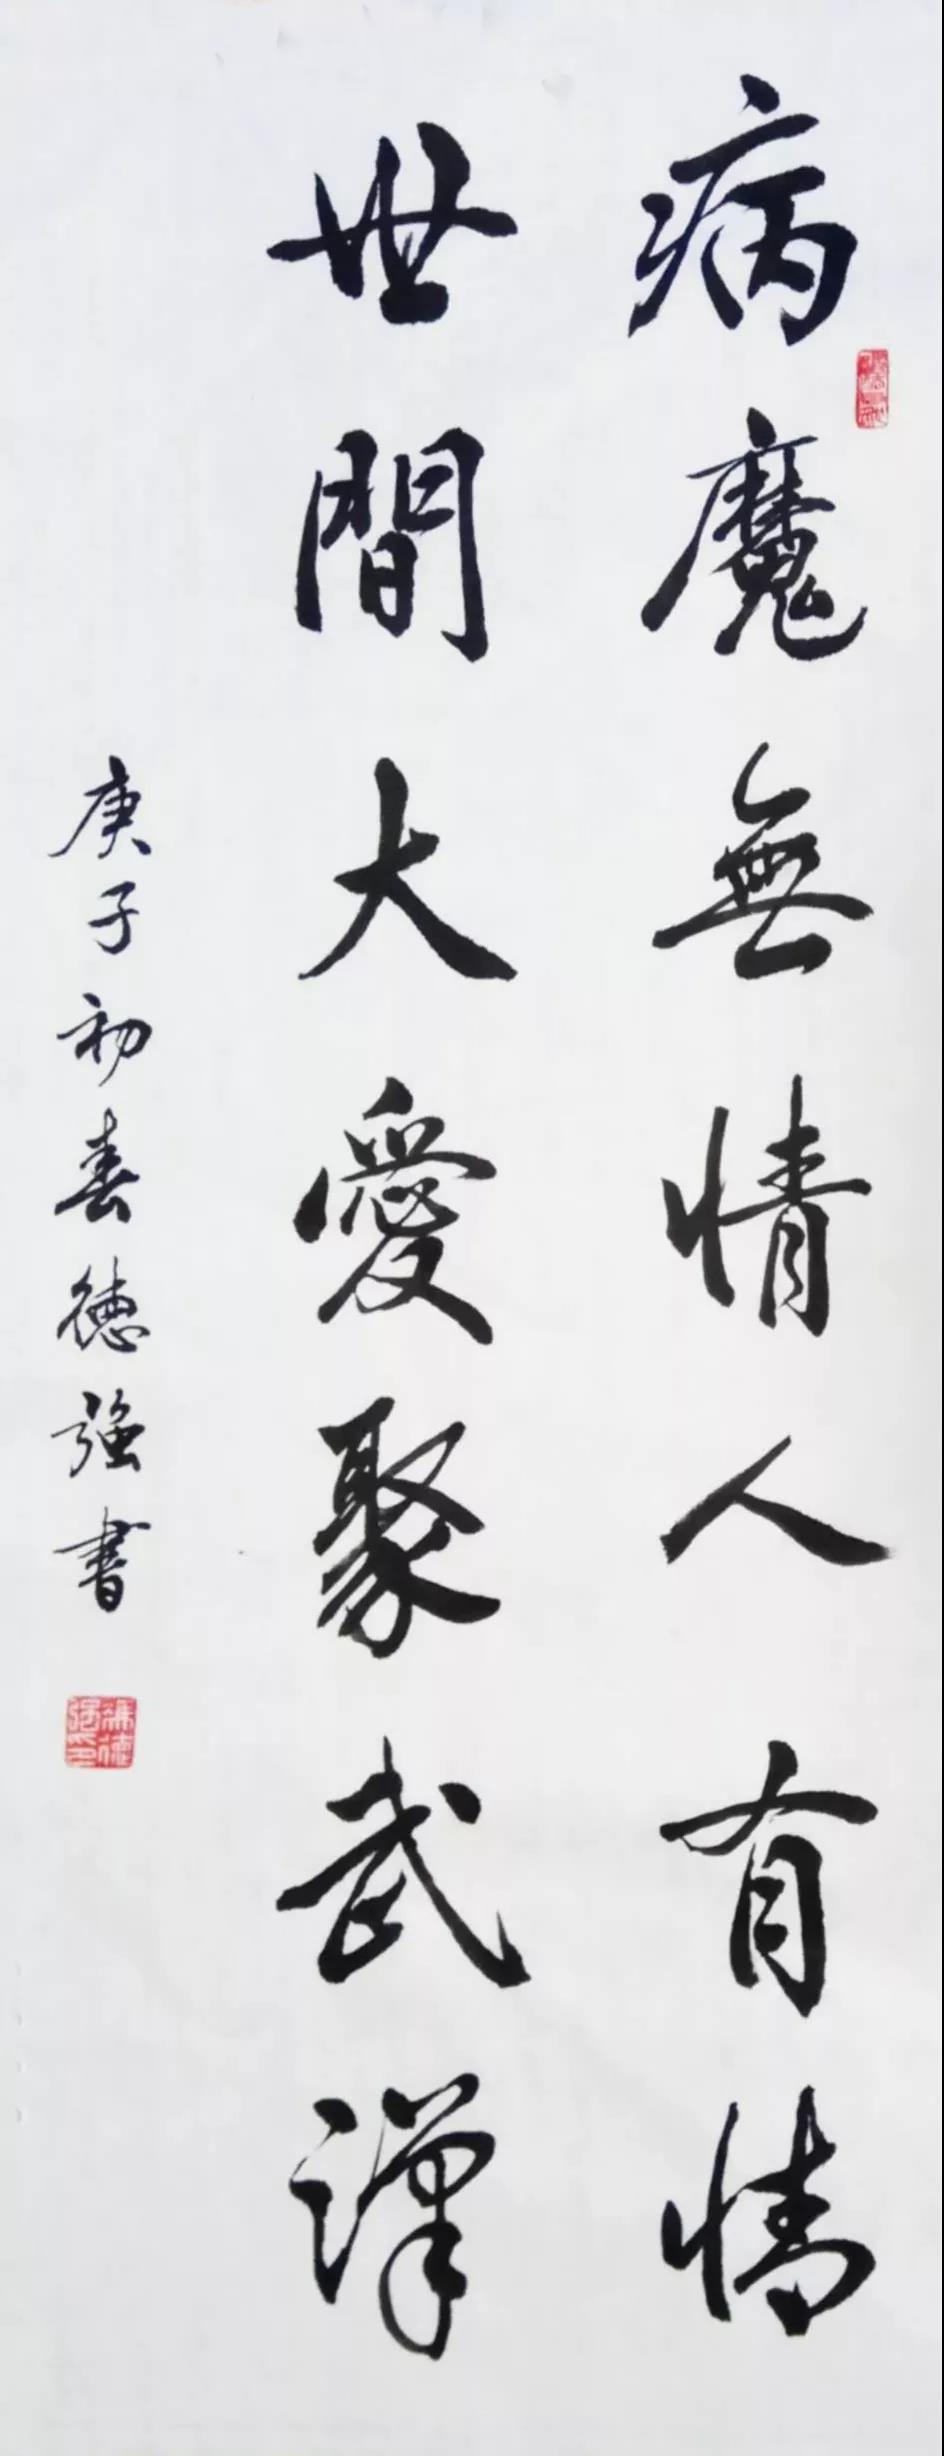 病魔無情人有情
世間大愛聚武漢
庚子初春德強書